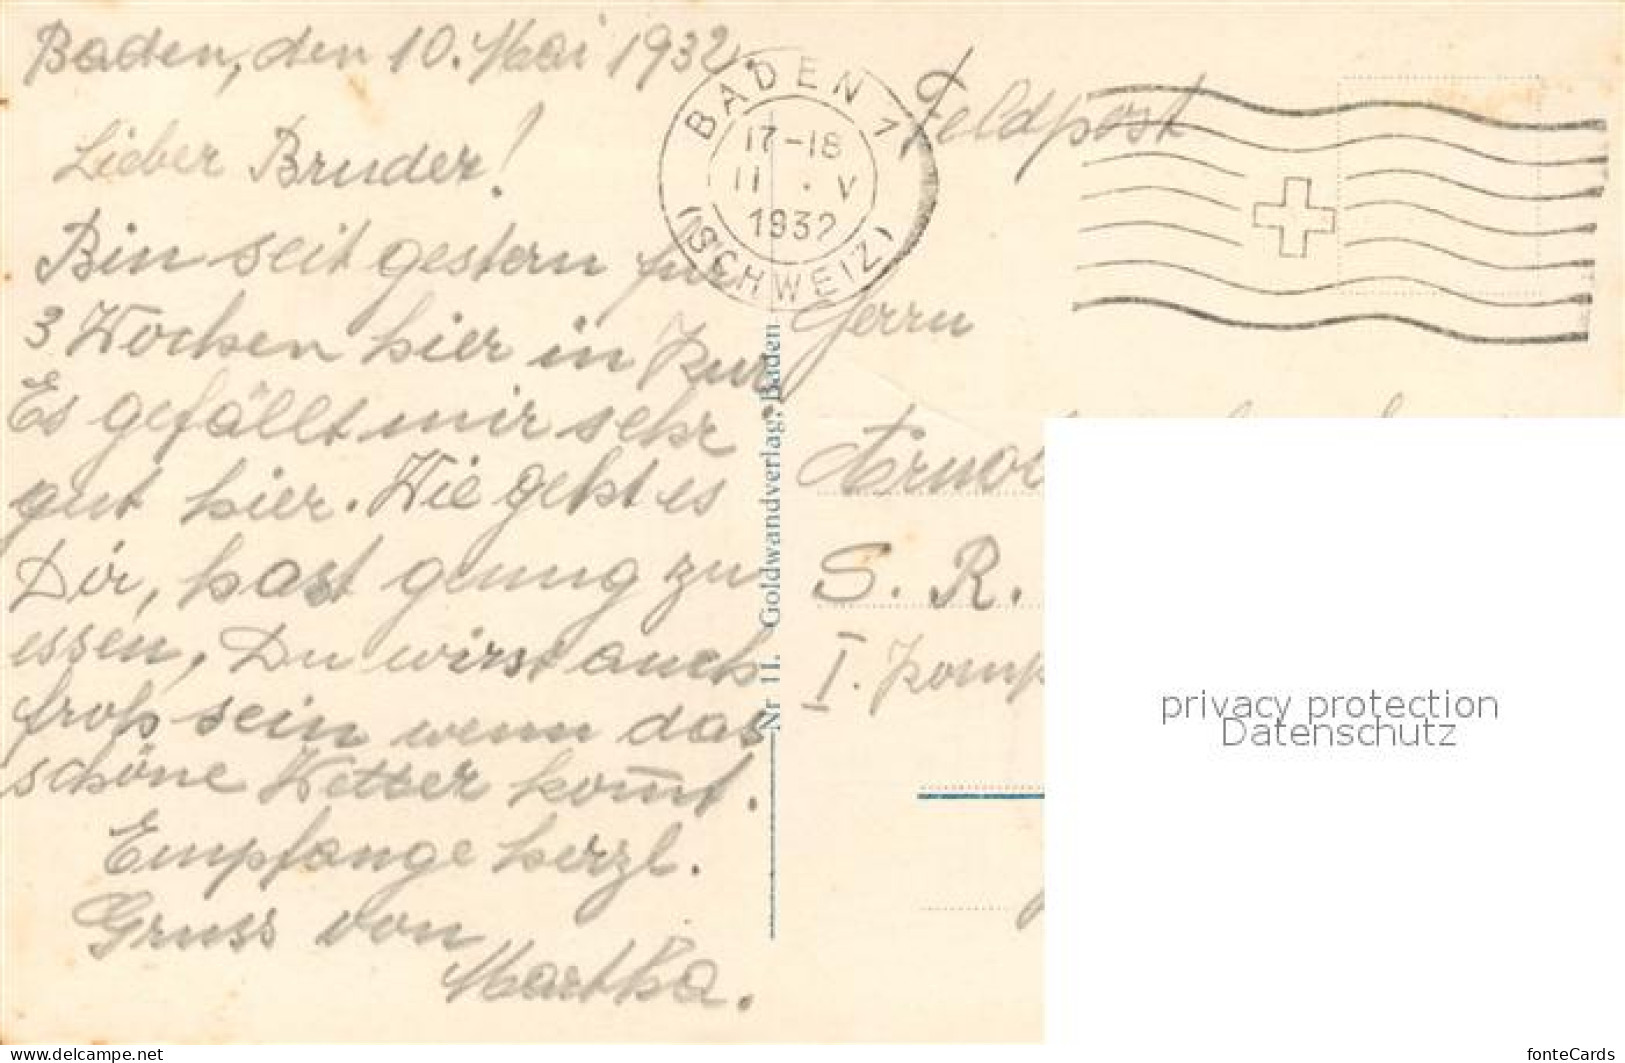 Baden, den 10. Mai 1932.
Lieber Bruder!
Bin seit gestern für
3 Wochen hier in Kur
Es gefällt mir sehr
gut hier. Wie geht es
Dir, hast genug zu
essen, Du wirst auch
froh sein wenn das
schöne Wetter kom̅t.
Empfange herzl.
Gruss von
Martha.
BADEN 1
17-18
11.V
1932
(SCHWEIZ)
Nr 11. Goldwandverlag, Baden
Feldpost
Herrn
S. R.
I. Komp
privacy protection
Datenschutz
www.delcampe.net
fonteCards